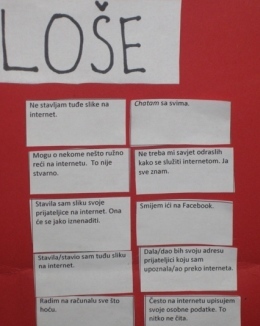 LOŠE
Ne stavljam tuđe slike na
internet.
Chatam sa svima.
Mogu o nekome nešto ružno
reći na internetu. To nije
stvarno.
Ne treba mi savjet odraslih
kako se služiti internetom. Ja
sve znam.
Stavila sam sliku svoje
prijateljice na internet. Ona
će se jako iznenaditi.
Smijem ići na Facebook.
Stavila/stavio sam tuđu sliku
na internet.
Dala/dao bih svoju adresu
prijateljici koju sam
upoznala/ao preko interneta.
Radim na računalu sve što
hoću.
Često na internetu upisujem
svoje osobne podatke. To
nitko ne čita.